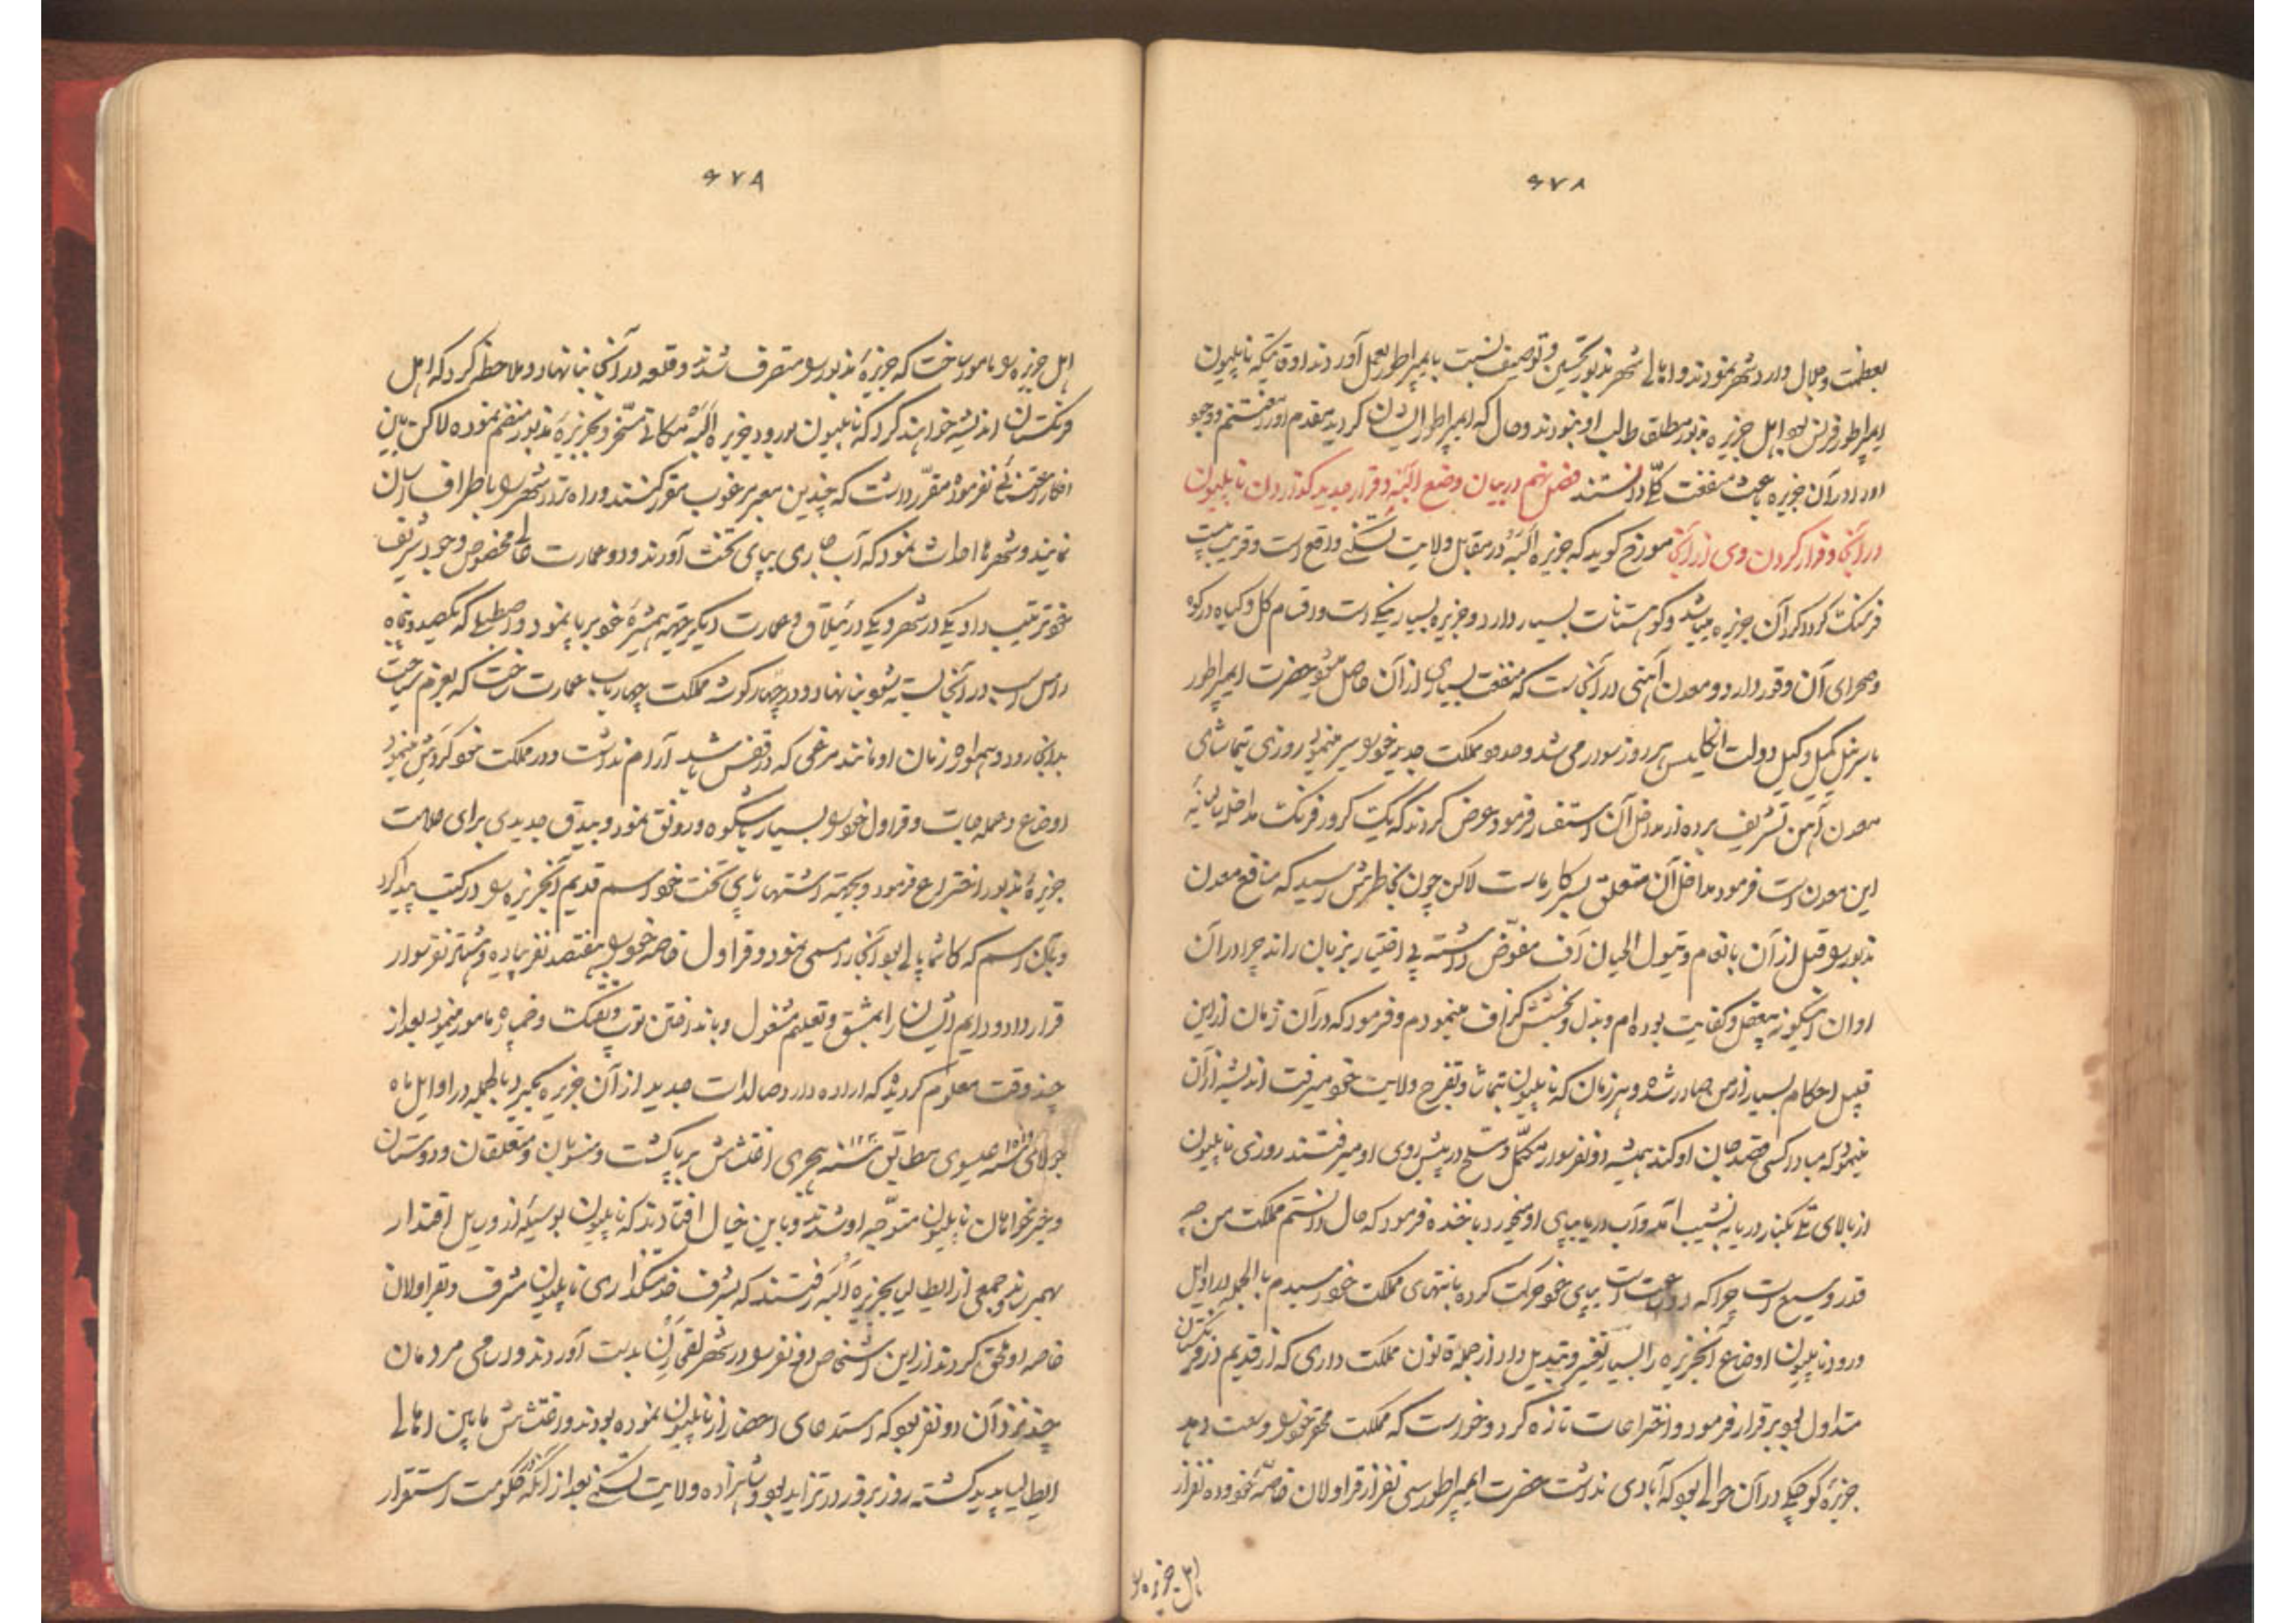 ۶۷۸
بعظمت و جلال وارد شهر نمودند و اهالی شهر مذبور تحسین و توصیف نسبت بایمپراطور بعمل آوردند اوقاتیکه ناپلیون
ایمپراطور فرنس بود اهل جزیره مذبور مطلقا طالب او نبودند و حال که ایمپراطور ایشان گردید مقدم او را مغتنم و وجود
او را در آن جزیره باعث منفعت کلی دانستند فصل نهم در بیان وضع البه و قرار جدید گذاردن ناپلیون
در آنجا و فرار کردن وی از آنجا مورخ گوید که جزیره البه در مقابل ولایت تسکنی واقع است و قریب بیست
فرسنگ گرداگرد آن جزیره میباشد و کوهستانات بسیار دارد و جزیره بسیار نیکی است و اقسام گل و گیاه در کوه
و صحرای آن وفور دارد و معدن آهنی در آنجاست که منفعت بسیاری از آن حاصل میشود حضرت ایمپراطور
با سرنیل کمپل وکیل دولت انگلیس هر روز سوار می شد و حدود مملکت جدید خود را سیر مینمود روزی بتماشای
معدن آهن تشریف برده از مداخل آن استفسار فرمود عرض کردند که یک کرور فرنک مداخل سالیانه
این معدن است فرمود مداخل آن متعلق بسرکار ماست لاکن چون بخاطرش رسید که منافع معدن
مذبور را قبل از آن بانعام و تیول اعیان آف مفوض داشته بی اختیار بزبان راند چرا در آن
اوان اینگونه بیعقل و کفایت بوده ام و بذل و بخشش گزاف مینمودم و فرمود که در آن زمان از این
قبیل احکام بسیار از من صادر شده و هر زمان که ناپلیون بتماشا و تفرج ولایت خود میرفت اندیشه از آن
مینمود که مبادا کسی قصد جان او کند همیشه دو نفر سوار مکمل و مسلح در پیش روی او میرفتند روزی ناپلیون
از بالای تلی بکنار دریا به نشیب آمد و آب دریا بپای او میخورد با خنده فرمود که حال دانستم مملکت من چه
قدر وسیع است چرا که در دو ساعت است بپای خود حرکت کرده بانتهای مملکت خود رسیدم بالجمله در اوایل
ورود ناپلیون اوضاع آنجزیره را بسیار تغییر و تبدیل داد از جمله قانون مملکت داری که از قدیم در فرنگستان
متداول بود برقرار فرمود و اختراعات تازه کرد و خواست که مملکت محقر خود را وسعت دهد
جزیره کوچکی در آن حوالی بود که آبادی نداشت حضرت ایمپراطور سی نفر از قراولان خاصه خود و ده نفر از
اهل جزیره را
۶۷۹
اهل جزیره را مامور ساخت که جزیره مذبور را متصرف شدند و قلعه در آنجا بنا نهاد و ملاحظه کرد که اهل
فرنگستان اندیشه خواهند کرد که ناپلیون بورود جزیره البه مکانی تسخر و بجزیره مذبور منضم نموده لاکن باین
افکار اعتنائی نفرموده مقرر داشت که چندین معبر مرغوب مقرر کنند و راه تردد شهر را باطراف آسان
نمایند و نهرها احداث نمود که آب جاری بپای تخت آورند و دو عمارت عالی مخصوص وجود شریف
خود ترتیب داد یکی در شهر و یکی در ییلاق و عمارت دیگر بجهته همشیره خود بر پا نمود و اصطبلی که یکصد و پنجاه
راس اسب در آنجا بسته شود بنا نهاد و در چهار گوشه مملکت چهار باب عمارت ساخت که بعزم سیاحت
بدانجا رود و همواره زمان او مانند مرغی که در قفس باشد آرام نداشت و در مملکت خود گردش مینمود
اوضاع و عمله جات و قراول خود را بسیار باشکوه و رونق نمود و بیدق جدیدی برای علامت
جزیره مذبور اختراع فرمود و بجهته اشتهار پای تخت خود اسم قدیم آنجزیره را در کتب پیدا کرد
و بآن اسم که کاسماپالی بود آنجا را مسمی نمود و قراول خاصه خود را بهفتصد نفر پیاده و هشتاد نفر سوار
قرار داد و دایم ایشان را بمشق و تعلیم مشغول و باندختن توپ و تفنگ و خمپاره مامور مینمود بعد از
چند وقت معلوم گردید که اراده دارد صالدات جدید از آن جزیره بگیرد بالجمله در اوایل ماه
جولای سنه ۱۸۱۵ عیسوی مطابق سنه ۱۲۳۰ هجری اغتشاش بر پا گشت و منسوبان و متعلقان و دوستان
و خیرخواهان ناپلیون متوجه او شدند و باین خیال افتادند که ناپلیون بوسیله از وسایل اقتدار
بهمرساند و جمعی از ایطالیا بجزیره البه رفتند که بشرف خدمتگذاری ناپلیون مشرف و بقراولان
خاصه او ملحق گردند از این اشخاص دو نفر را در شهر لقهارن بدست آوردند و اسامی مردمان
چند نزد آن دو نفر بود که استدعای احضار از ناپلیون نموده بودند و اغتشاش مابین اهالی
ایطالیا پدید گشته روز بروز در تزاید بود و شاهزاده ولایت تسکنی بعد از آنکه در حکومت استقرار